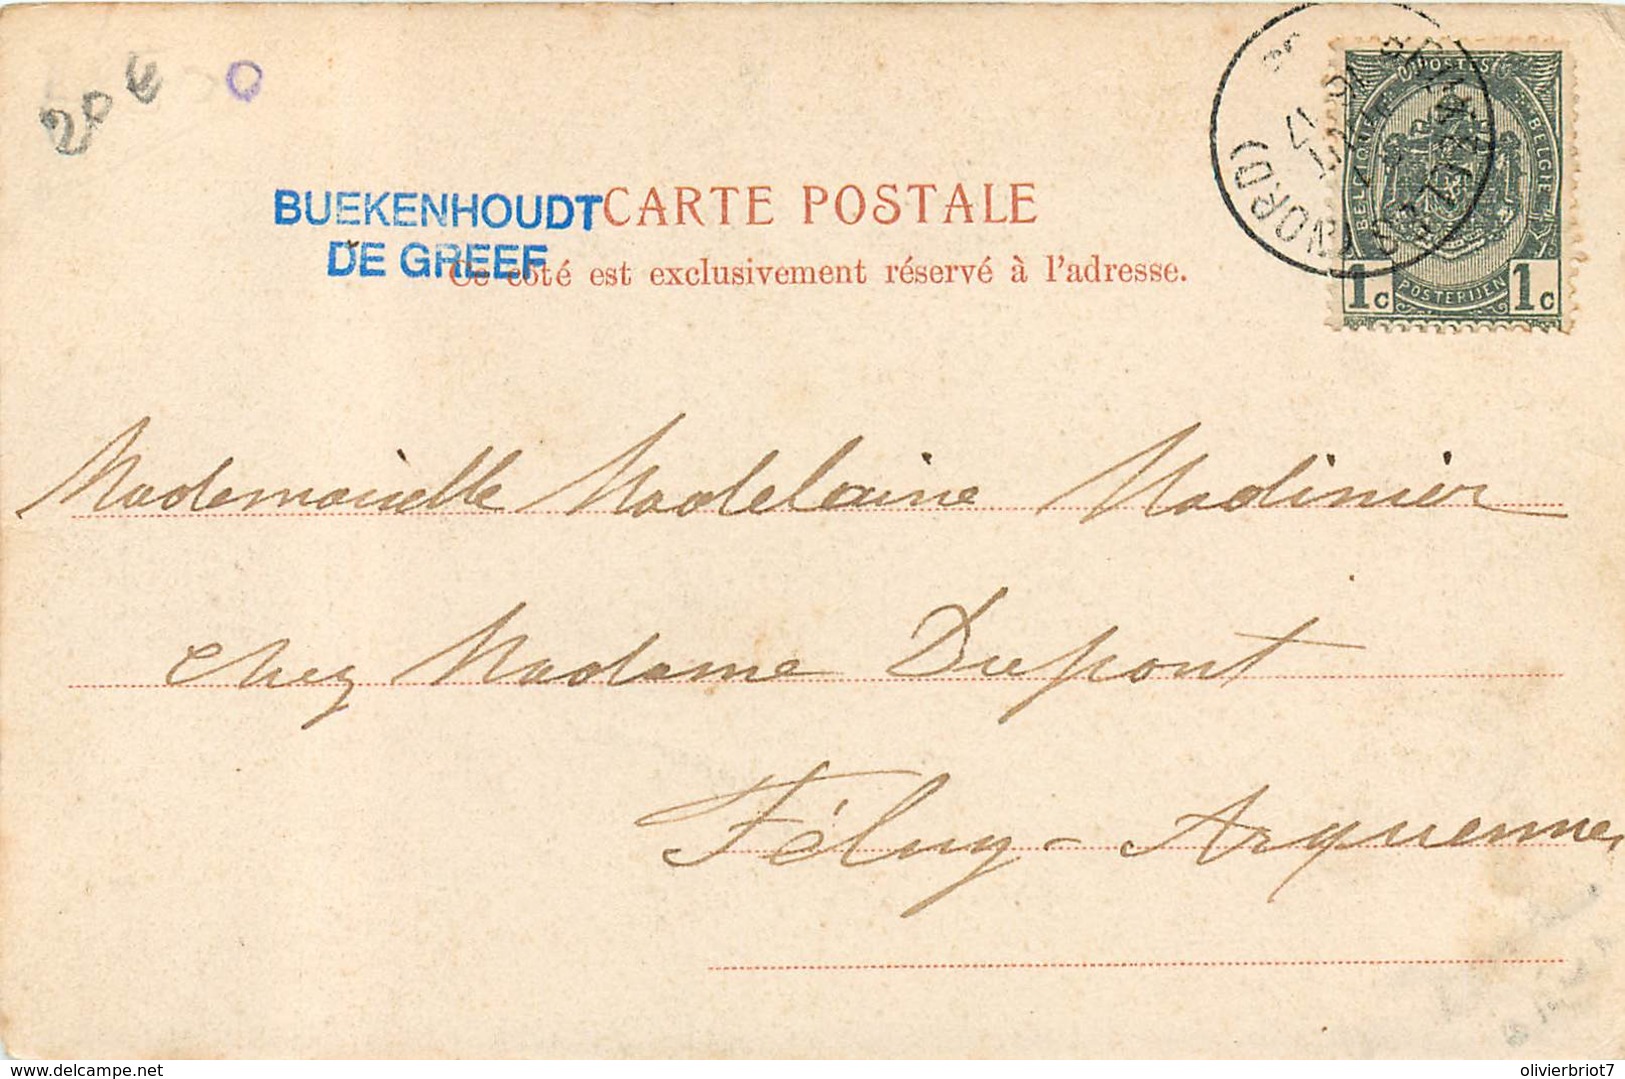 20 €
BUEKENHOUDT
DE GREEF
CARTE POSTALE
Ce côté est exclusivement réservé à l'adresse.
BRUXELLES (NORD)
POSTES
BELGIQUE
BELGIE
POSTERIJEN
1c 1c
Mademoiselle Madelaine Madinier
chez Madame Dupont
Féluy-Arquennes
delcampe.net
olivierbriot7